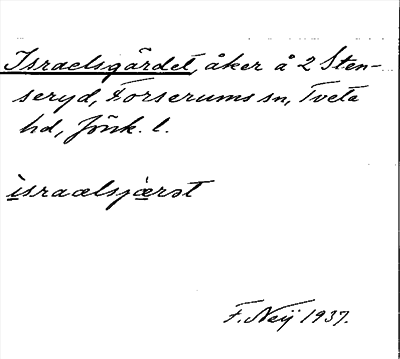 Israelsgärdet, åker å 2 Sten-
seryd, Forserums sn, Tveta
hd, Jönk. l.
ìsraelsjæ̀rət
F. Neij 1937.